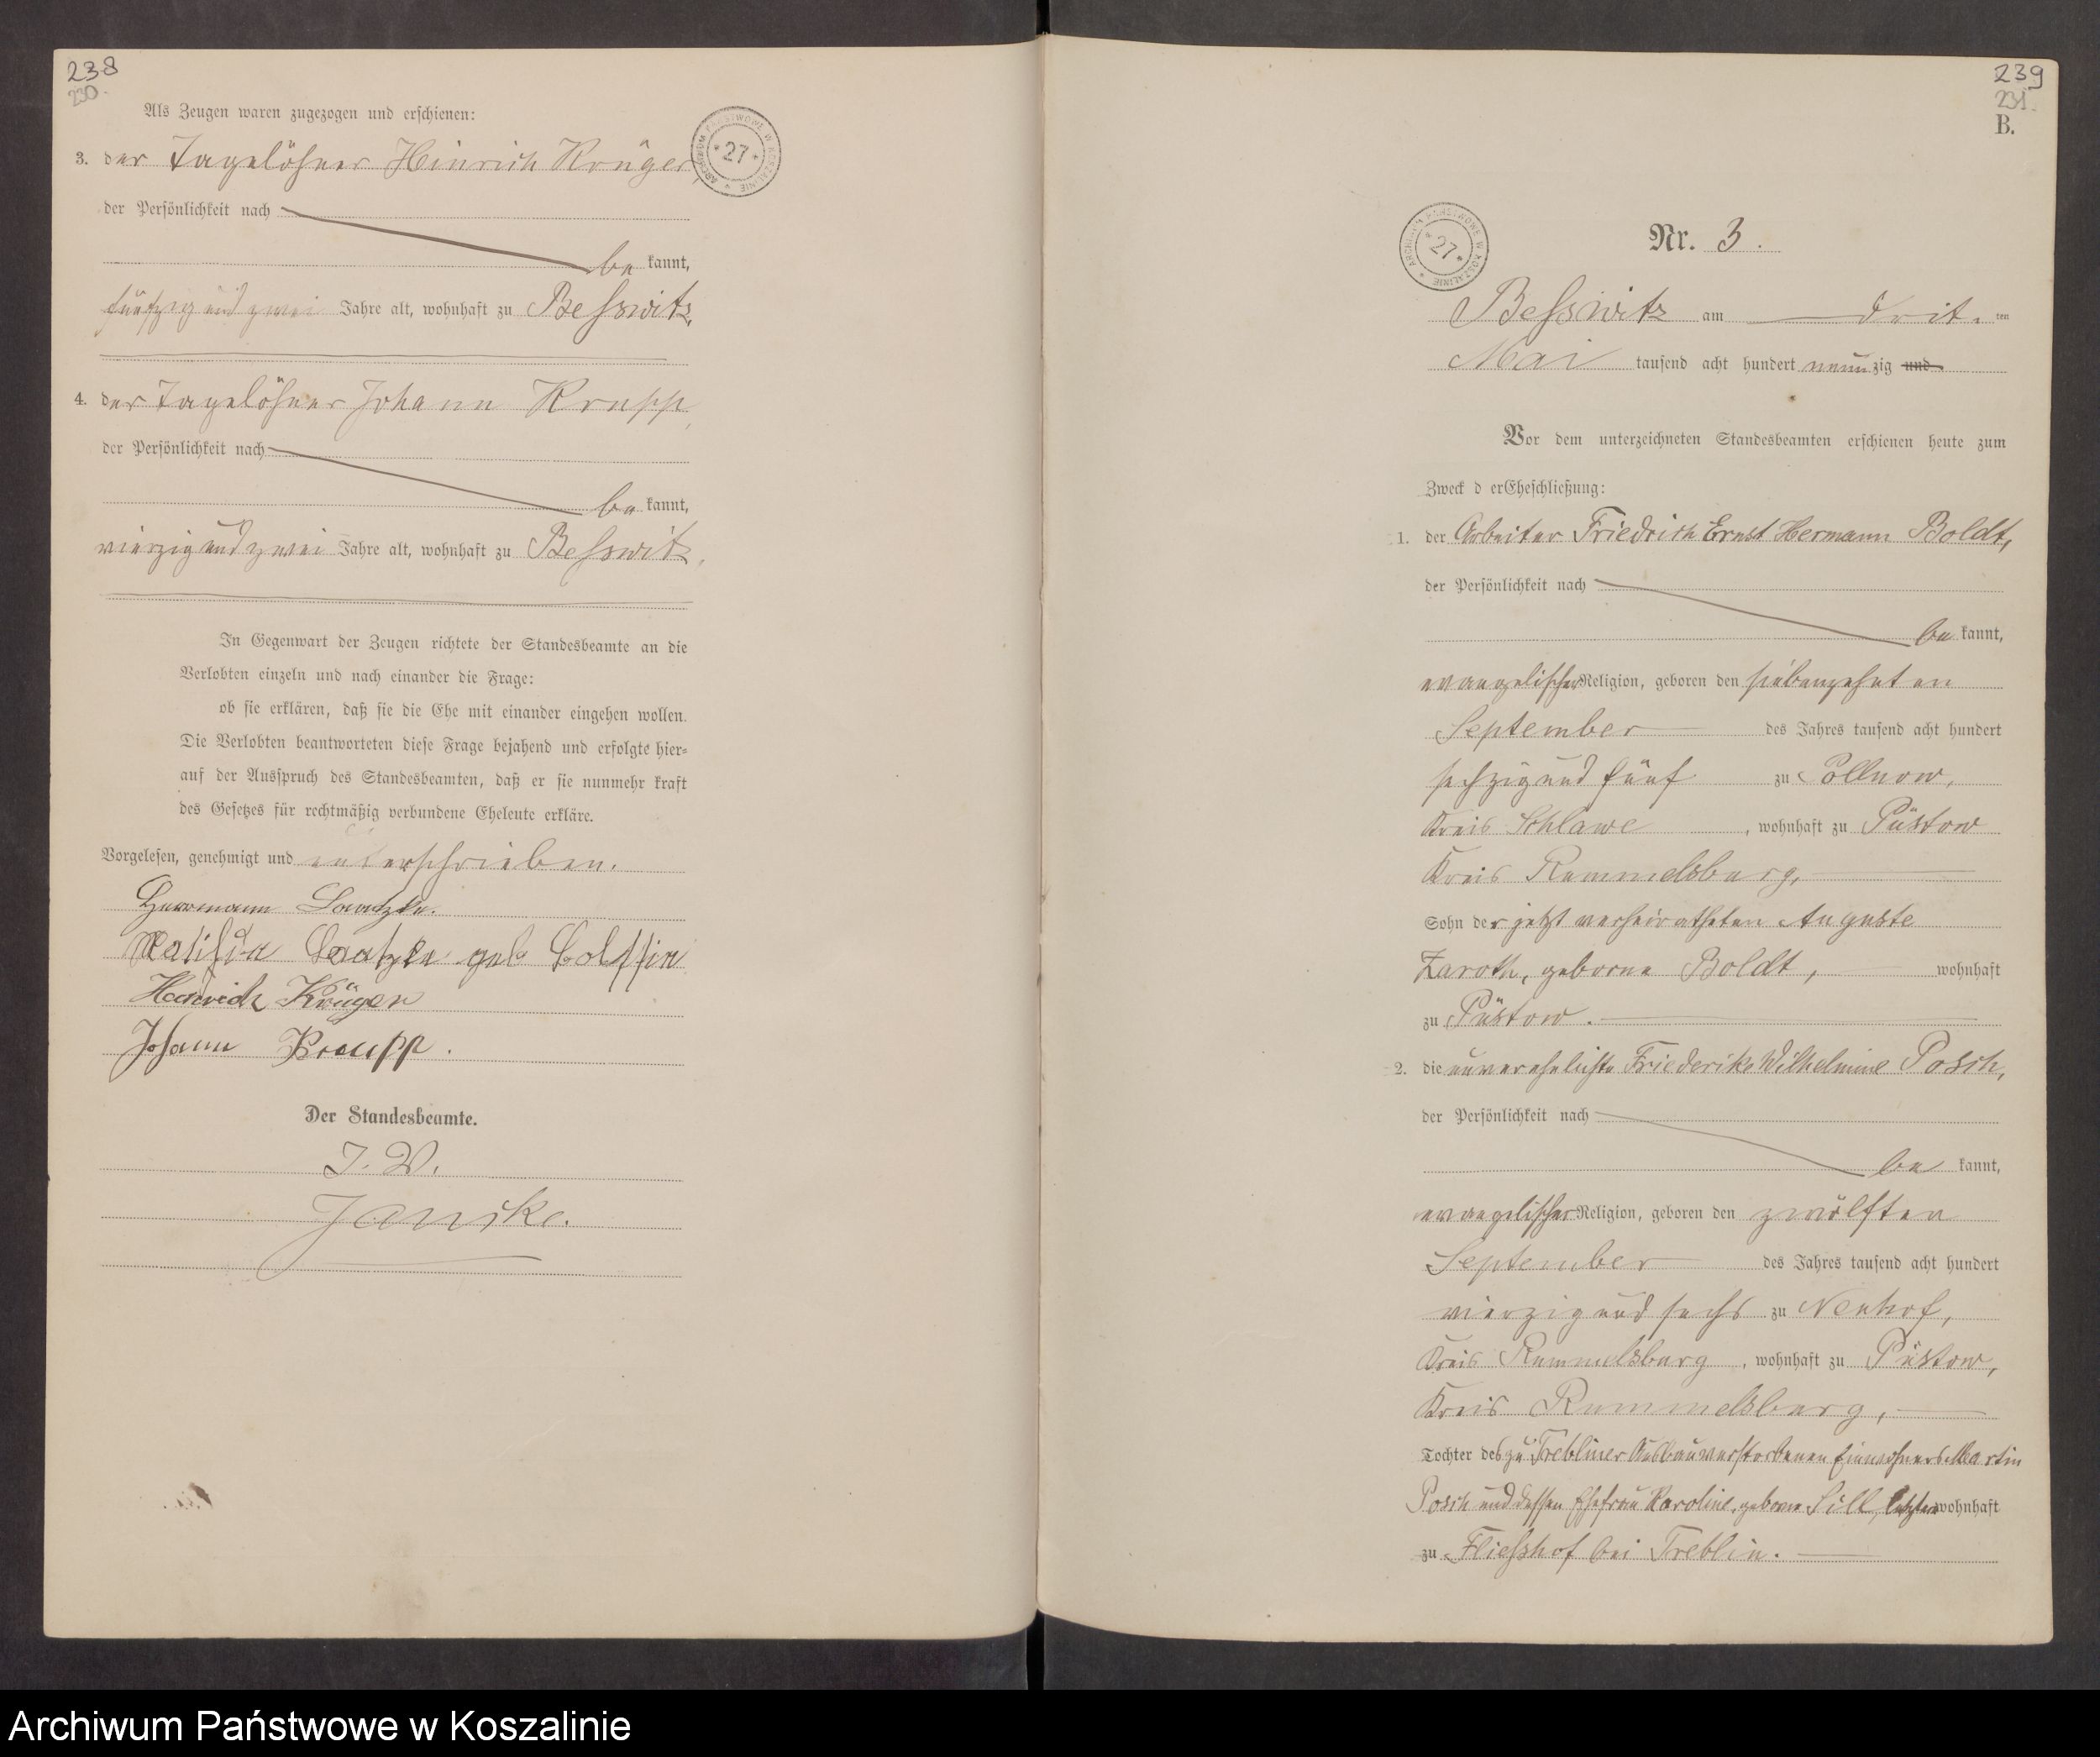 238
230.
Als Zeugen waren zugezogen und erschienen:
3. der Tagelöhner Heinrich Krüger,
der Persönlichkeit nach
be kannt,
fünfzig und zwei Jahre alt, wohnhaft zu Besswitz,
4. der Tagelöhner Johann Krupp,
der Persönlichkeit nach
be kannt,
vierzig und zwei Jahre alt, wohnhaft zu Besswitz,
In Gegenwart der Zeugen richtete der Standesbeamte an die
Verlobten einzeln und nach einander die Frage:
ob sie erklären, daß sie die Ehe mit einander eingehen wollen.
Die Verlobten beantworteten diese Frage bejahend und erfolgte hier-
auf der Ausspruch des Standesbeamten, daß er sie nunmehr kraft
des Gesetzes für rechtmäßig verbundene Eheleute erkläre.
Vorgelesen, genehmigt und unterschrieben.
Herrmann
geb
Heinrich Krüger
Johann Krupp.
Der Standesbeamte.
J. V.
Janske.
ARCHIWUM PAŃSTWOWE W KOSZALINIE * 27 *
239
231.
B.
ARCHIWUM PAŃSTWOWE W KOSZALINIE * 27 *
Nr. 3.
Besswitz am drit. ten
Mai tausend acht hundert neun zig und
Vor dem unterzeichneten Standesbeamten erschienen heute zum
Zweck d erEheschließung:
1. der Arbeiter Friedrich Ernst Hermann Boldt,
der Persönlichkeit nach
be kannt,
evangelischer Religion, geboren den siebenzehnten
September des Jahres tausend acht hundert
sechzig und fünf zu Pollnow,
Kreis Schlawe, wohnhaft zu Püstow
Kreis Rummelsburg,
Sohn der jetzt verheiratheten Auguste
Zaroth, geborne Boldt, wohnhaft
zu Püstow.
2. die unverehelichte Friederike Wilhelmine Posch,
der Persönlichkeit nach
be kannt,
evangelischer Religion, geboren den zwölften
September des Jahres tausend acht hundert
vierzig und sechs zu Neuhof,
Kreis Rummelsburg, wohnhaft zu Püstow,
Kreis Rummelsburg,
Tochter des zu Trebliner Ausbau verstorbenen Einwohners Martin
Posch und dessen Ehefrau Karoline, geborne Sill, letztere wohnhaft
zu Fliesshof bei Treblin.
Archiwum Państwowe w Koszalinie